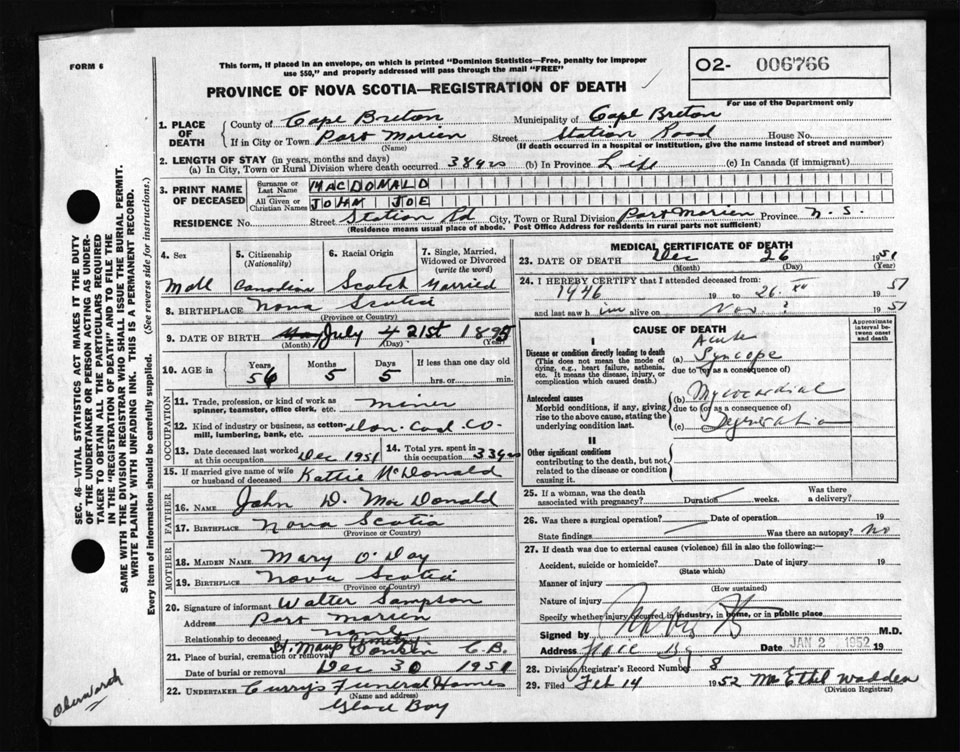 FORM 6
This form, if placed in an envelope, on which is printed "Dominion Statistics—Free, penalty for improper
use $50," and properly addressed will pass through the mail "FREE"
O2- 006766
For use of the Department only
PROVINCE OF NOVA SCOTIA—REGISTRATION OF DEATH
1. PLACE OF DEATH
County of Cape Breton Municipality of Cape Breton
If in City or Town Port Morien Street Station Road House No.
(Name) (If death occurred in a hospital or institution, give the name instead of street and number)
2. LENGTH OF STAY (in years, months and days)
(a) In City, Town or Rural Division where death occurred 38 yrs (b) In Province Life (c) In Canada (if immigrant)
3. PRINT NAME OF DECEASED
Surname or Last Name MACDONALD
All Given or Christian Names JOHN JOE
RESIDENCE No. Street Station Rd City, Town or Rural Division Port Morien Province N.S.
(Residence means usual place of abode. Post Office Address for residents in rural parts not sufficient)
4. Sex 5. Citizenship (Nationality) 6. Racial Origin 7. Single, Married, Widowed or Divorced (write the word)
Male Canadian Scotch Married
8. BIRTHPLACE Nova Scotia
(Province or Country)
9. DATE OF BIRTH July 21st 1895
(Month) (Day) (Year)
10. AGE in Years Months Days If less than one day old
56 5 5 hrs. or min.
OCCUPATION
11. Trade, profession or kind of work as spinner, teamster, office clerk, etc. Miner
12. Kind of industry or business, as cotton-mill, lumbering, bank, etc. Dom. Coal Co.
13. Date deceased last worked at this occupation Dec 1951 14. Total yrs. spent in this occupation 33 yrs
15. If married give name of wife or husband of deceased Kattie McDonald
FATHER
16. NAME John D. MacDonald
17. BIRTHPLACE Nova Scotia
(Province or Country)
MOTHER
18. MAIDEN NAME Mary O'Day
19. BIRTHPLACE Nova Scotia
(Province or Country)
20. Signature of informant Walter Sampson
Address Port Morien
Relationship to deceased
21. Place of burial, cremation or removal St. Marys Cemetery C.B.
Date of burial or removal Dec 30 1951
22. UNDERTAKER Curry's Funeral Homes
(Name and address)
Glace Bay
MEDICAL CERTIFICATE OF DEATH
23. DATE OF DEATH Dec 26 1951
(Month) (Day) (Year)
24. I HEREBY CERTIFY that I attended deceased from:
1946 19 to 26 1951
and last saw him alive on Nov ? 1951
CAUSE OF DEATH
Approximate interval between onset and death
I
Disease or condition directly leading to death
(This does not mean the mode of dying, e.g., heart failure, asthenia, etc. It means the disease, injury, or complication which caused death.)
Acute
(a) Syncope
due to (or as a consequence of)
Antecedent causes
Morbid conditions, if any, giving rise to the above cause, stating the underlying condition last.
(b) Myocardial
due to (or as a consequence of)
(c) Degeneration
II
Other significant conditions
contributing to the death, but not related to the disease or condition causing it.
25. If a woman, was the death associated with pregnancy? Duration weeks. Was there a delivery?
26. Was there a surgical operation? Date of operation 19
State findings Was there an autopsy? No
27. If death was due to external causes (violence) fill in also the following:—
Accident, suicide or homicide? Date of injury 19
(State which)
Manner of injury
(How sustained)
Nature of injury
Specify whether injury occurred in industry, in home, or in public place
Signed by M.D.
Address Glace Bay Date JAN 2 1952 19
28. Division Registrar's Record Number 8
29. Filed Feb 14 1952 Mrs Ethel Wadden
(Division Registrar)
SEC. 46—VITAL STATISTICS ACT MAKES IT THE DUTY
OF THE UNDERTAKER OR PERSON ACTING AS UNDER-
TAKER TO OBTAIN ALL THE PARTICULARS REQUIRED
IN THE "REGISTRATION OF DEATH" AND TO FILE THE
SAME WITH THE DIVISION REGISTRAR WHO SHALL ISSUE THE BURIAL PERMIT.
WRITE PLAINLY WITH UNFADING INK. THIS IS A PERMANENT RECORD.
Every item of information should be carefully supplied. (See reverse side for instructions.)